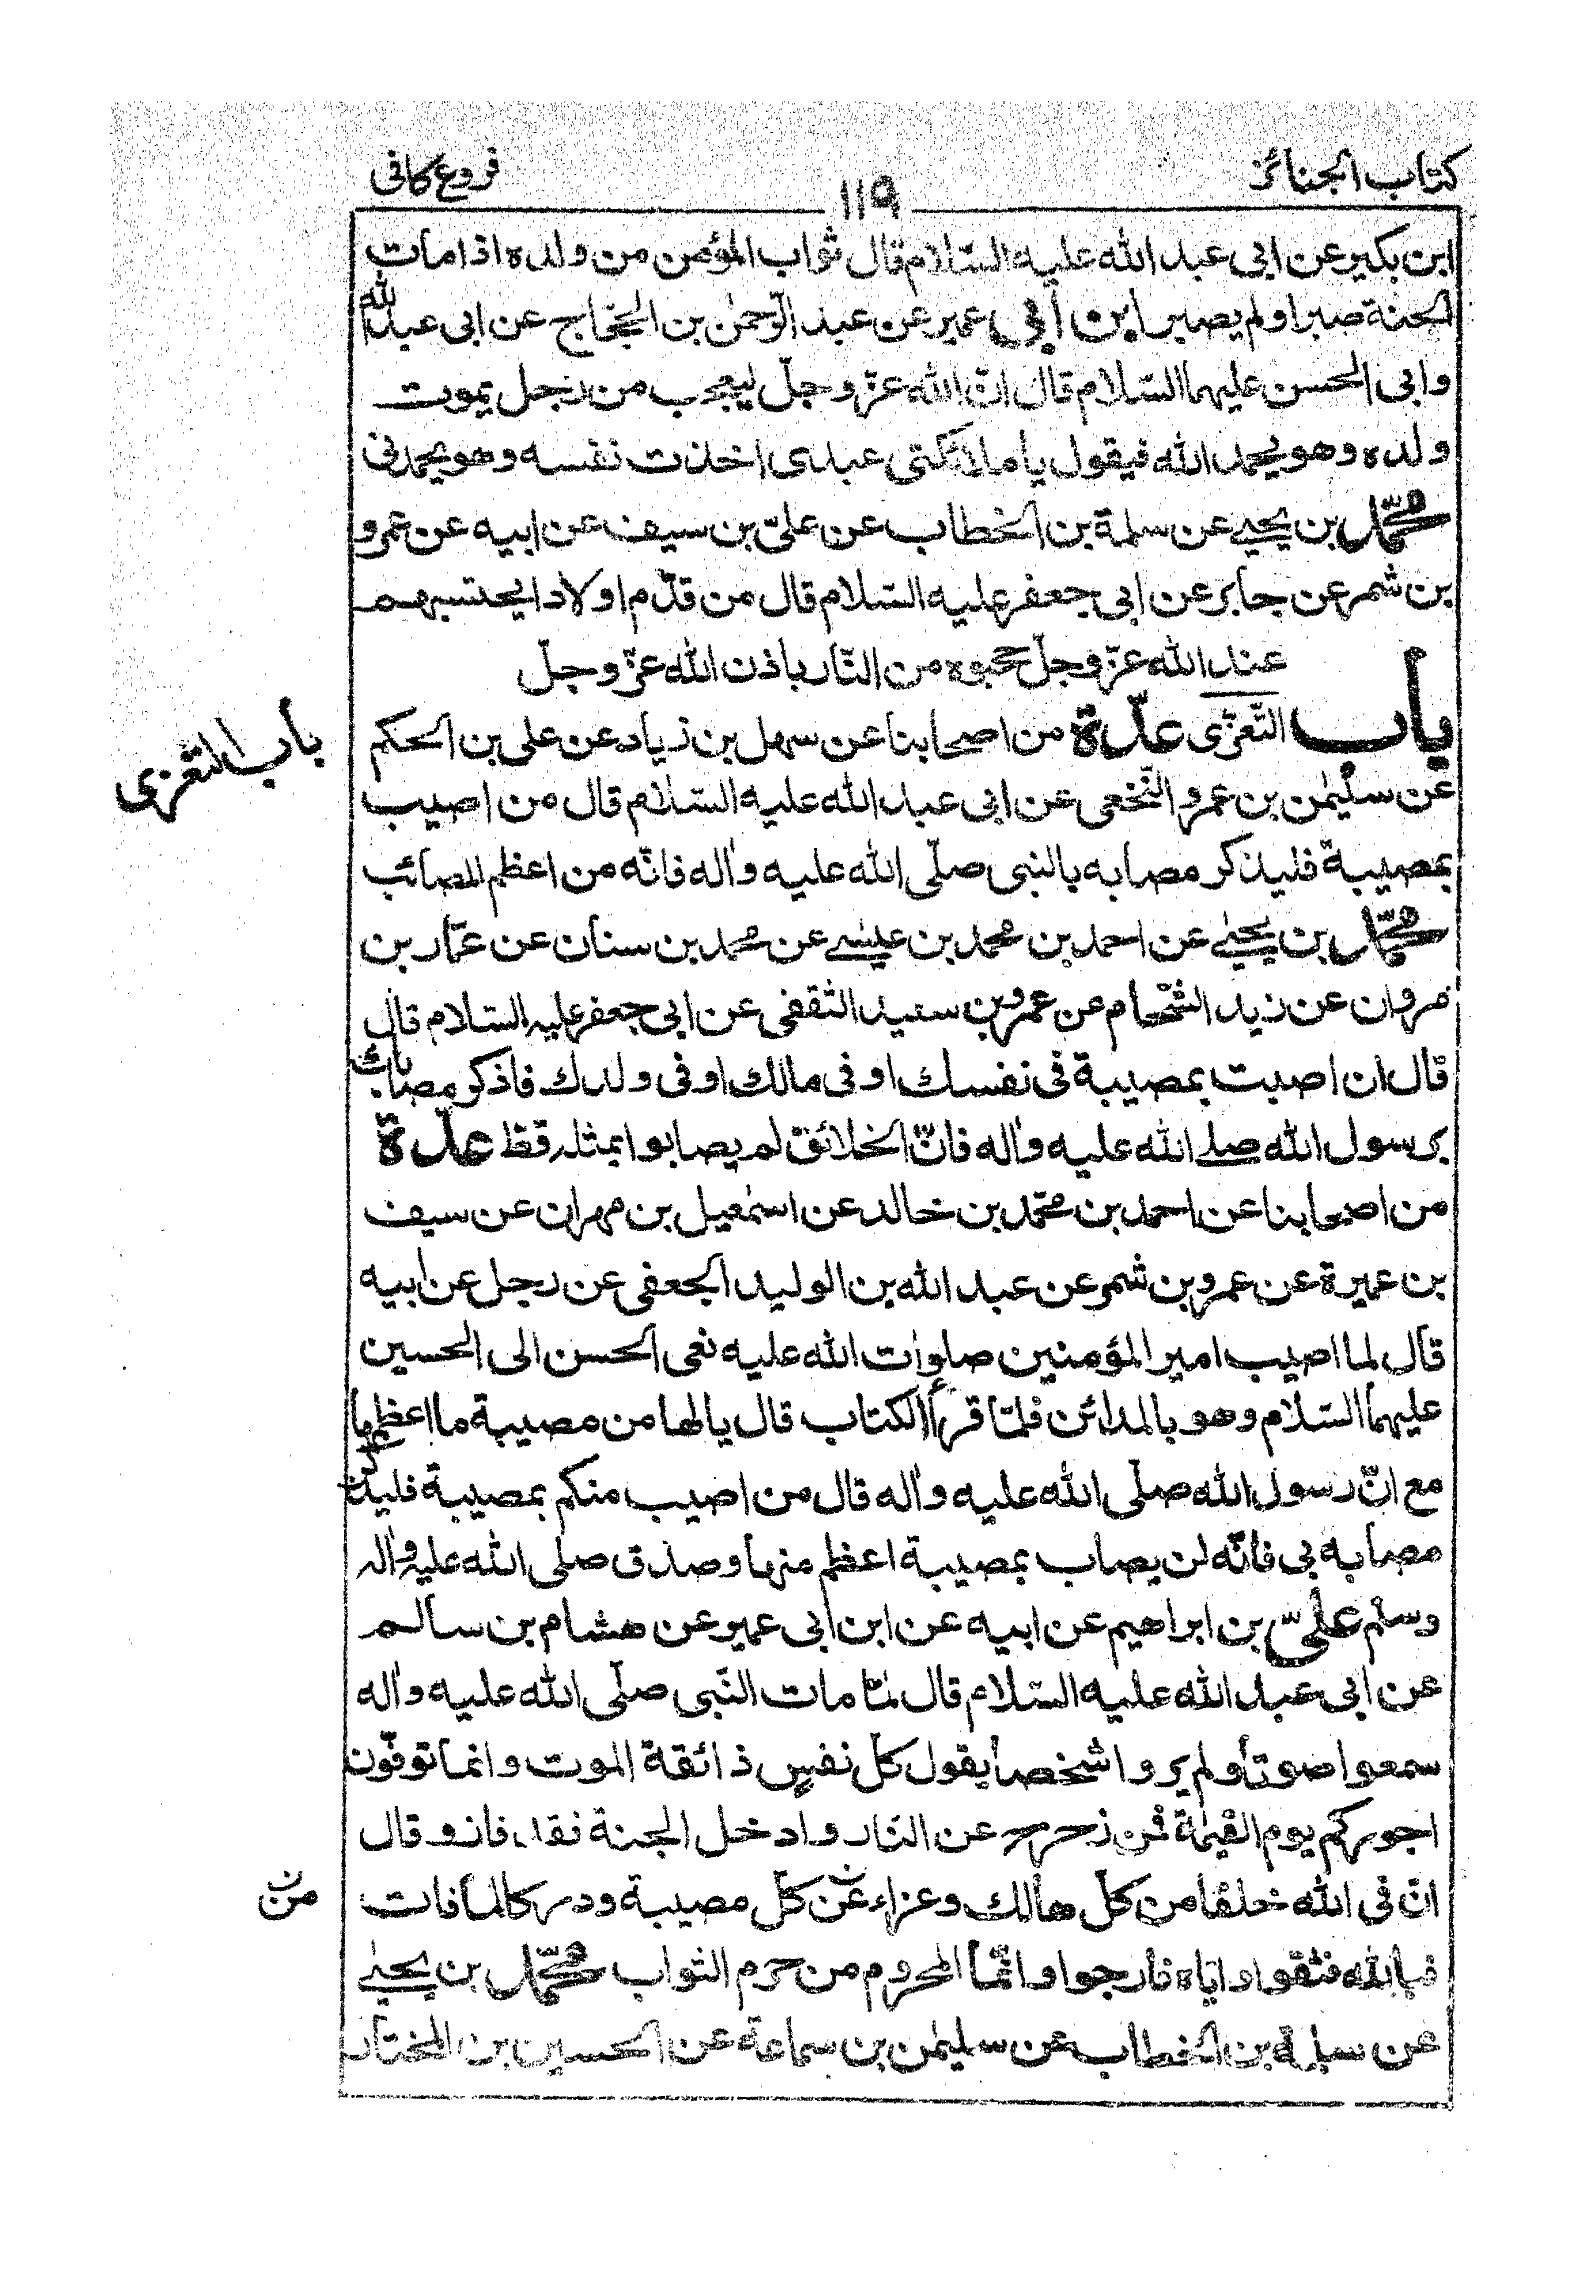 كتاب الجنائز
١١٩
فروع كافى
ابن بكير عن ابى عبد الله عليه السّلام قال ثواب المؤمن من ولده اذا مات
الجنة صبر او لم يصبر ابن أبي عمير عن عبد الرّحمٰن بن الحجّاج عن ابى عبد الله
وابى الحسن عليهما السّلام قال انّ الله عزّ وجلّ ليعجب من رجل يموت
ولده وهو يحمد الله فيقول يا ملائكتى عبدى اخذت نفسه وهو يحمدنى
محمّد بن يحيى عن سلمة بن الخطاب عن علىّ بن سيف عن ابيه عن عمرو
بن شمر عن جابر عن ابى جعفر عليه السّلام قال من قدّم اولادا يحتسبهم
عند الله عزّ وجلّ حجبوه من النّار باذن الله عزّ وجلّ
باب التّعزّى عدّة من اصحابنا عن سهل بن زياد عن على بن الحكم
باب التعزى
عن سليمٰن بن عمرو النّخعى عن ابى عبد الله عليه السّلام قال من اصيب
بمصيبة فليذكر مصابه بالنبى صلّى الله عليه واٰله فانّه من اعظم المصائب
محمّد بن يحيىٰ عن احمد بن محمد بن عيسى عن محمد بن سنان عن عمّار بن
مروان عن زيد الشّحّام عن عمرو بن سعيد الثقفى عن ابى جعفر عليه السّلام قال
قال ان اصبت بمصيبة فى نفسك او فى مالك او فى ولدك فاذكر مصابك
برسول الله صلى الله عليه واٰله فانّ الخلائق لم يصابوا بمثله قظ عدّة
من اصحابنا عن احمد بن محمّد بن خالد عن اسمٰعيل بن مهران عن سيف
بن عميرة عن عمرو بن شمر عن عبد الله بن الوليد الجعفى عن رجل عن ابيه
قال لما اصيب امير المؤمنين صلواٰت الله عليه نعى الحسن الى الحسين
عليهما السّلام وهو بالمدائن فلمّا قرأ الكتاب قال يا لها من مصيبة ما اعظمها
مع انّ رسول الله صلّى الله عليه واٰله قال من اصيب منكم بمصيبة فليذكر
مصابه بى فانّه لن يصاب بمصيبة اعظم منها وصدق صلى الله عليه واٰله
وسلم علىّ بن ابراهيم عن ابيه عن ابن ابى عمير عن هشام بن سالم
عن ابى عبد الله عليه السّلام قال لمّا مات النّبى صلّى الله عليه واٰله
سمعوا صوتاً ولم يروا شخصاً يقول كلّ نفسٍ ذائقة الموت وانما توفّون
اجوركم يوم القيٰمة فمن زحزح عن النّار وادخل الجنة فقد فاز وقال
انّ فى الله خلفا من كلّ هالك وعزاء عن كلّ مصيبة ودركا لما فات
من
فبالله فثقوا واياه فارجوا وانّما المحروم من حرم الثواب محمّد بن يحيىٰ
عن سلمة بن الخطاب عن سليمٰن بن سماعة عن الحسين بن المختار